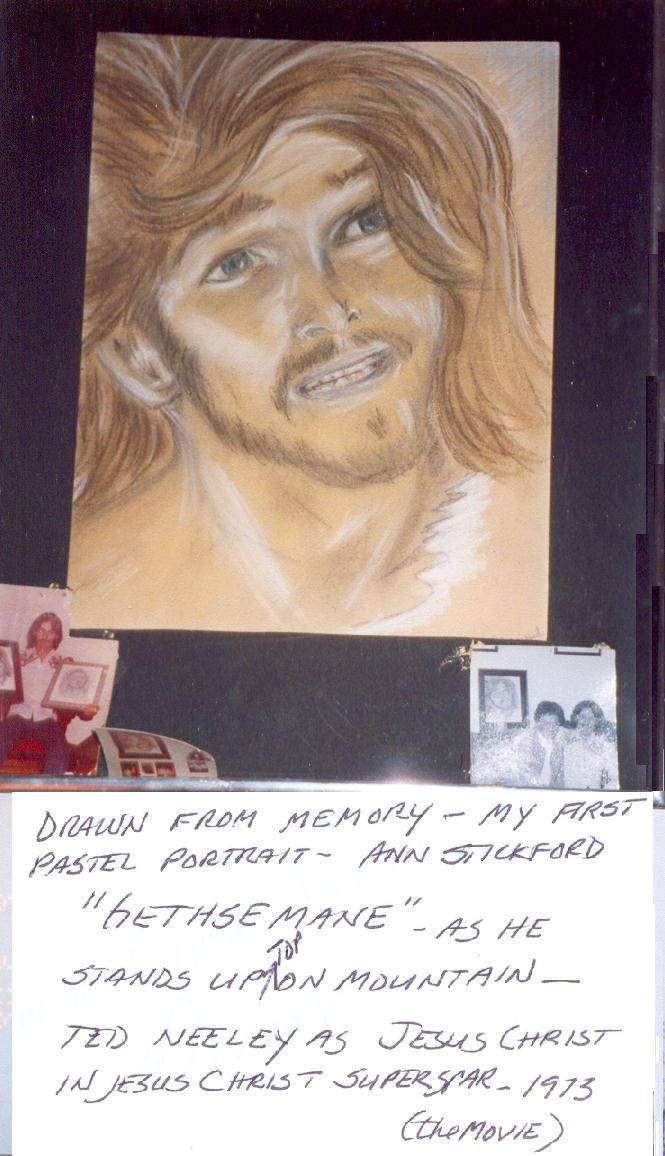 DRAWN FROM MEMORY - MY FIRST
PASTEL PORTRAIT - ANN STICKFORD
"GETHSEMANE" - AS HE
TOP
STANDS UP ON MOUNTAIN -
TED NEELEY AS JESUS CHRIST
IN JESUS CHRIST SUPERSTAR - 1973
(the MOVIE)